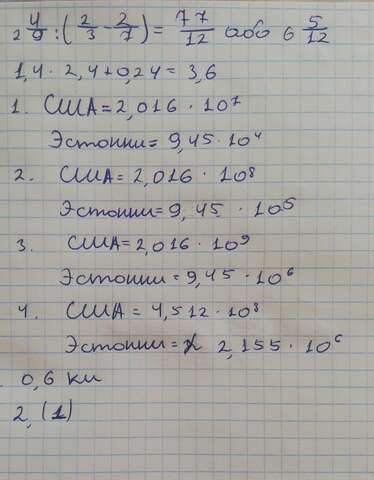 2 4/9 : (2/3 - 2/7) = 77/12 або 6 5/12
1,4 · 2,4 + 0,24 = 3,6
1. США = 2,016 · 10⁷
Эстонии = 9,45 · 10⁴
2. США = 2,016 · 10⁸
Эстонии = 9,45 · 10⁵
3. США = 2,016 · 10⁹
Эстонии = 9,45 · 10⁶
4. США = 4,512 · 10⁸
Эстонии = 2,155 · 10⁶
0,6 км
2,(1)